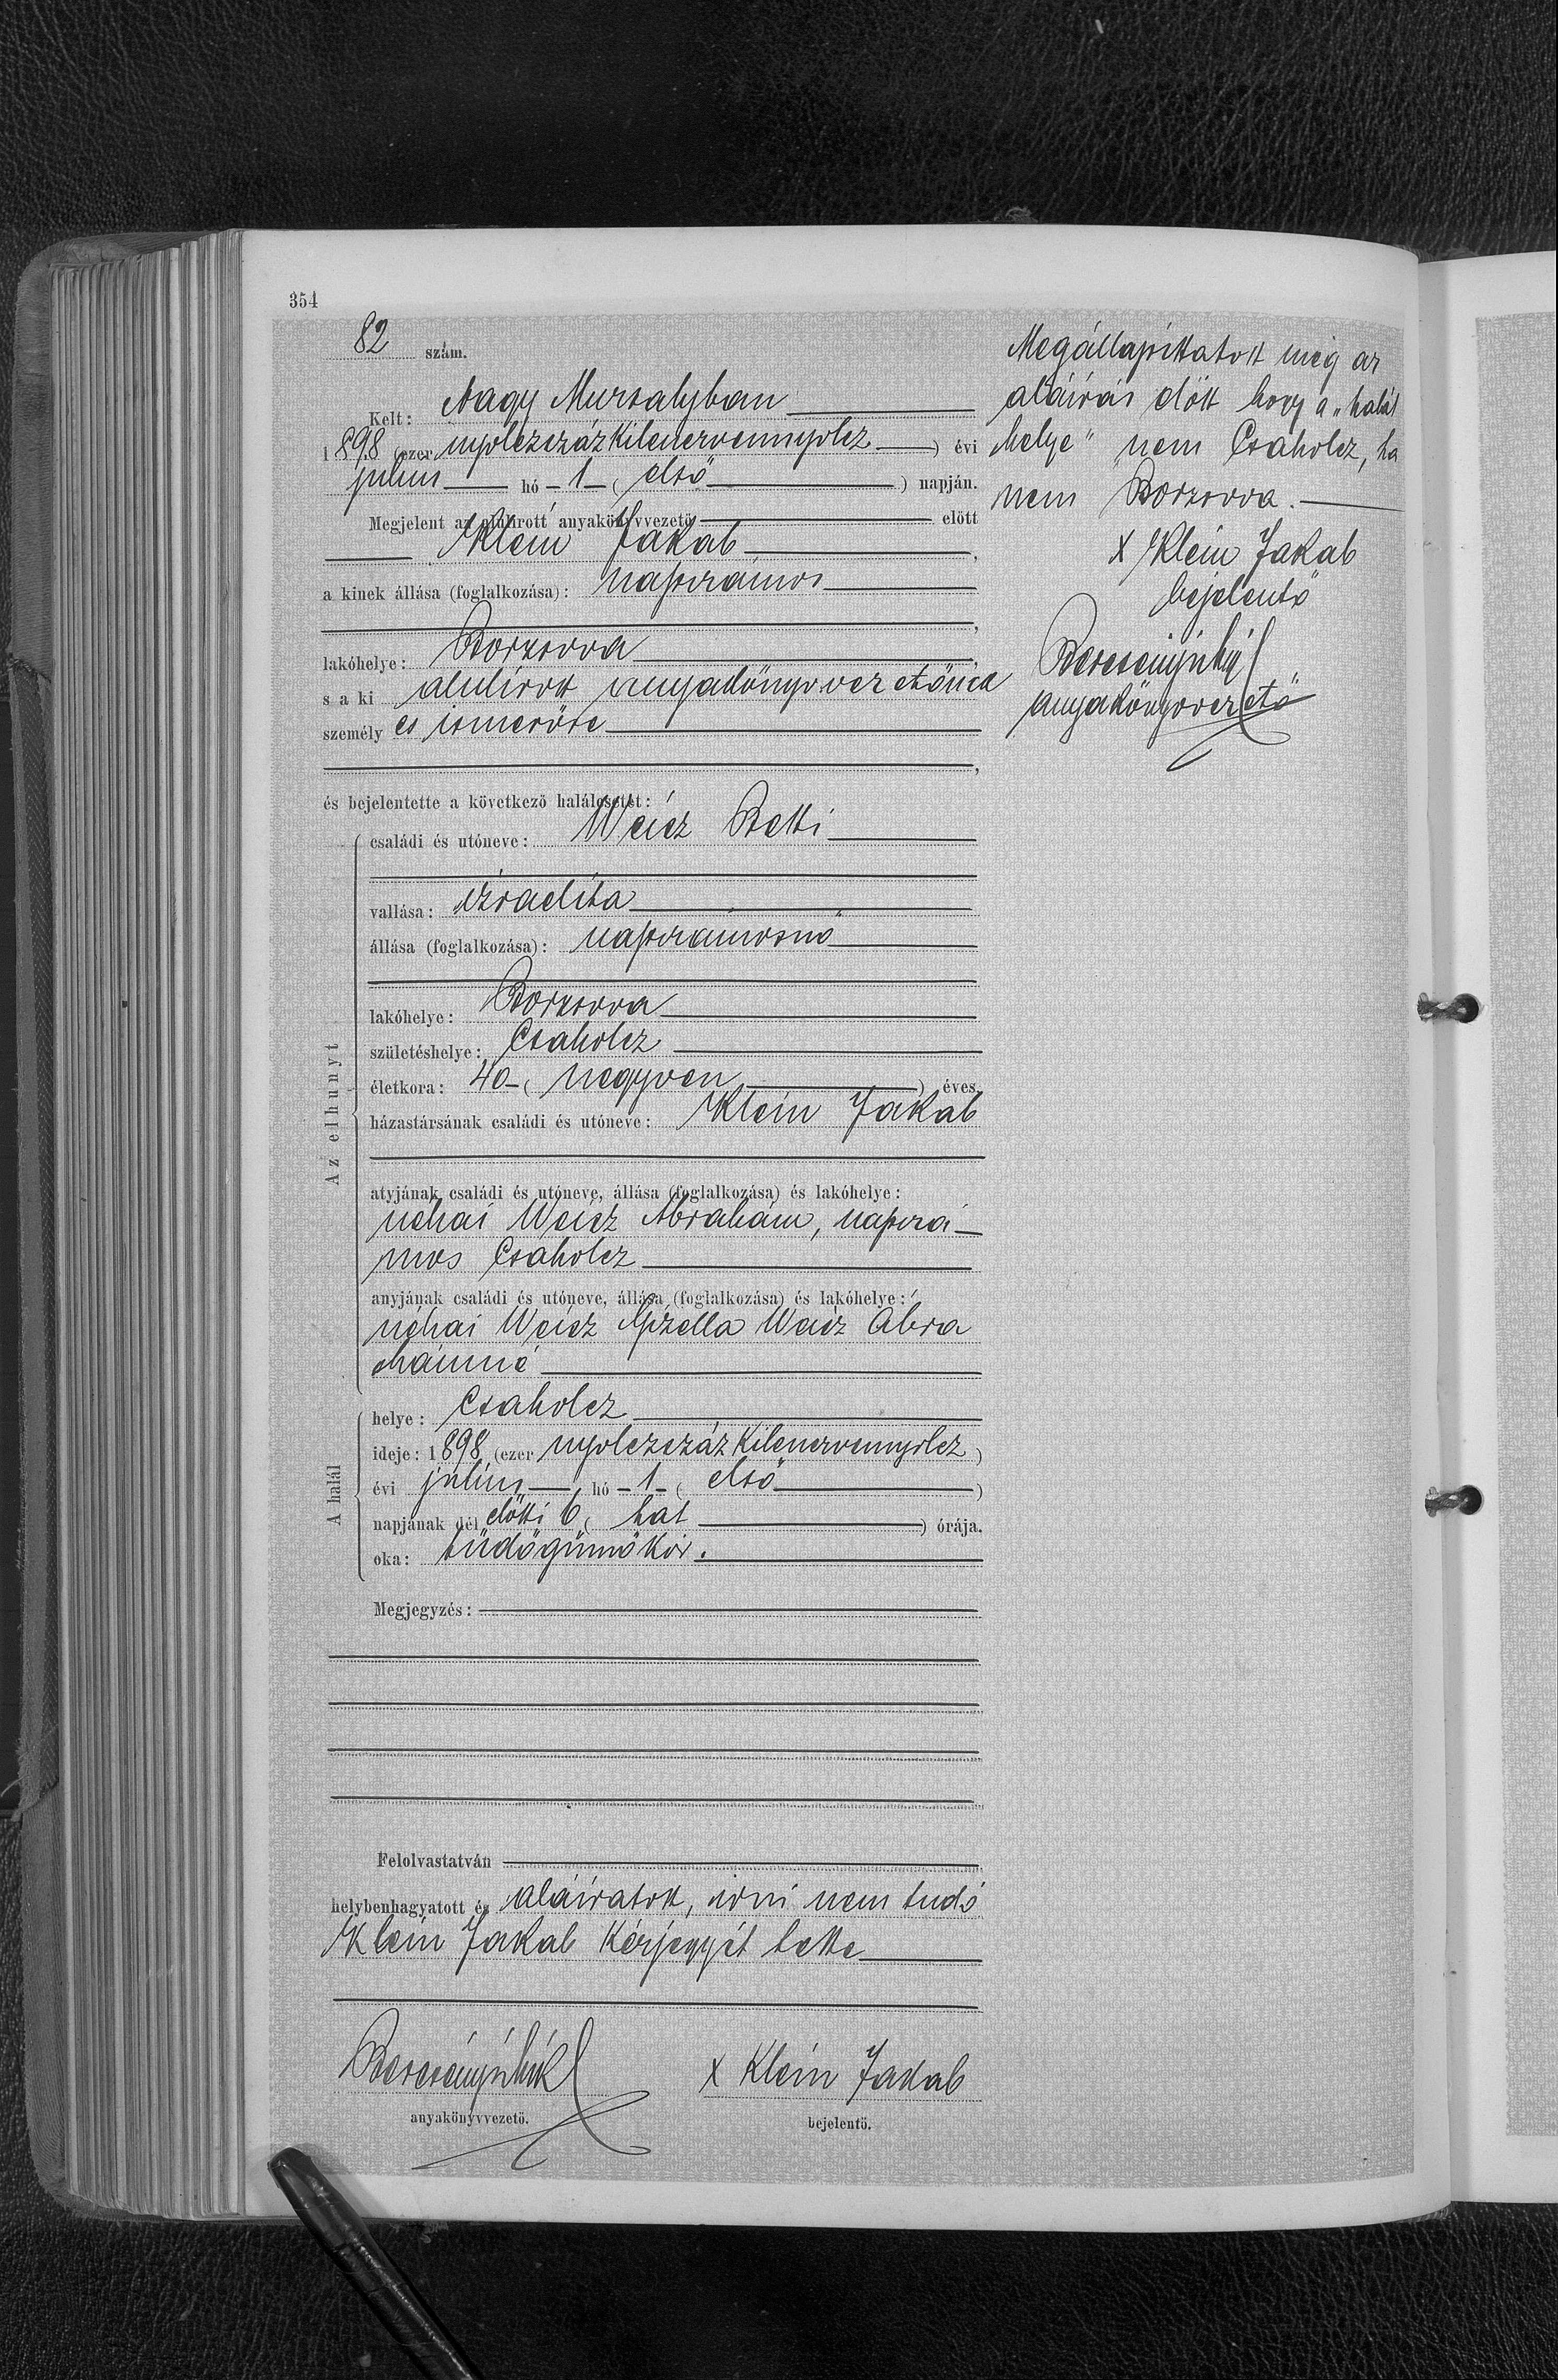 354
82 szám.
Kelt: Nagy Muzsalyban
1898 (ezer nyolczszáz kilenczvennyolcz) évi
julius hó 1 (első) napján.
Megjelent az alulirott anyakönyvvezető előtt
Klein Jakab,
a kinek állása (foglalkozása): napszámos
,
lakóhelye: Borzsova,
s a ki alulirott anyakönyvvezetőnek
személyes ismerőse
,
és bejelentette a következő halálesetet:
Az elhunyt
családi és utóneve: Weisz Betti
vallása: izraelita
állása (foglalkozása): napszámosnő
lakóhelye: Borzsova
születéshelye: Csaholcz
életkora: 40 (negyven) éves,
házastársának családi és utóneve: Klein Jakab
atyjának családi és utóneve, állása (foglalkozása) és lakóhelye:
néhai Weisz Abrahám, napszá-
mos Csaholcz
anyjának családi és utóneve, állása (foglalkozása) és lakóhelye:
néhai Weisz Gizella Weisz Abra
hámné
A halál
helye: Csaholcz
ideje: 1898 (ezer nyolczszáz kilenczvennyolcz)
évi julius hó 1 (első)
napjának dél előtti 6 (hat) órája.
oka: tüdőgümőkór.
Megjegyzés:
Felolvastatván
helybenhagyatott és aláiratott, irni nem tudó
Klein Jakab kézjegyét tette
x Klein Jakab
anyakönyvvezető.
bejelentő.
Megállapittatott még az
aláirás előtt hogy a „halál
helye" nem Csaholcz, ha
nem Borzsova.
x Klein Jakab
bejelentő
anyakönyvvezető